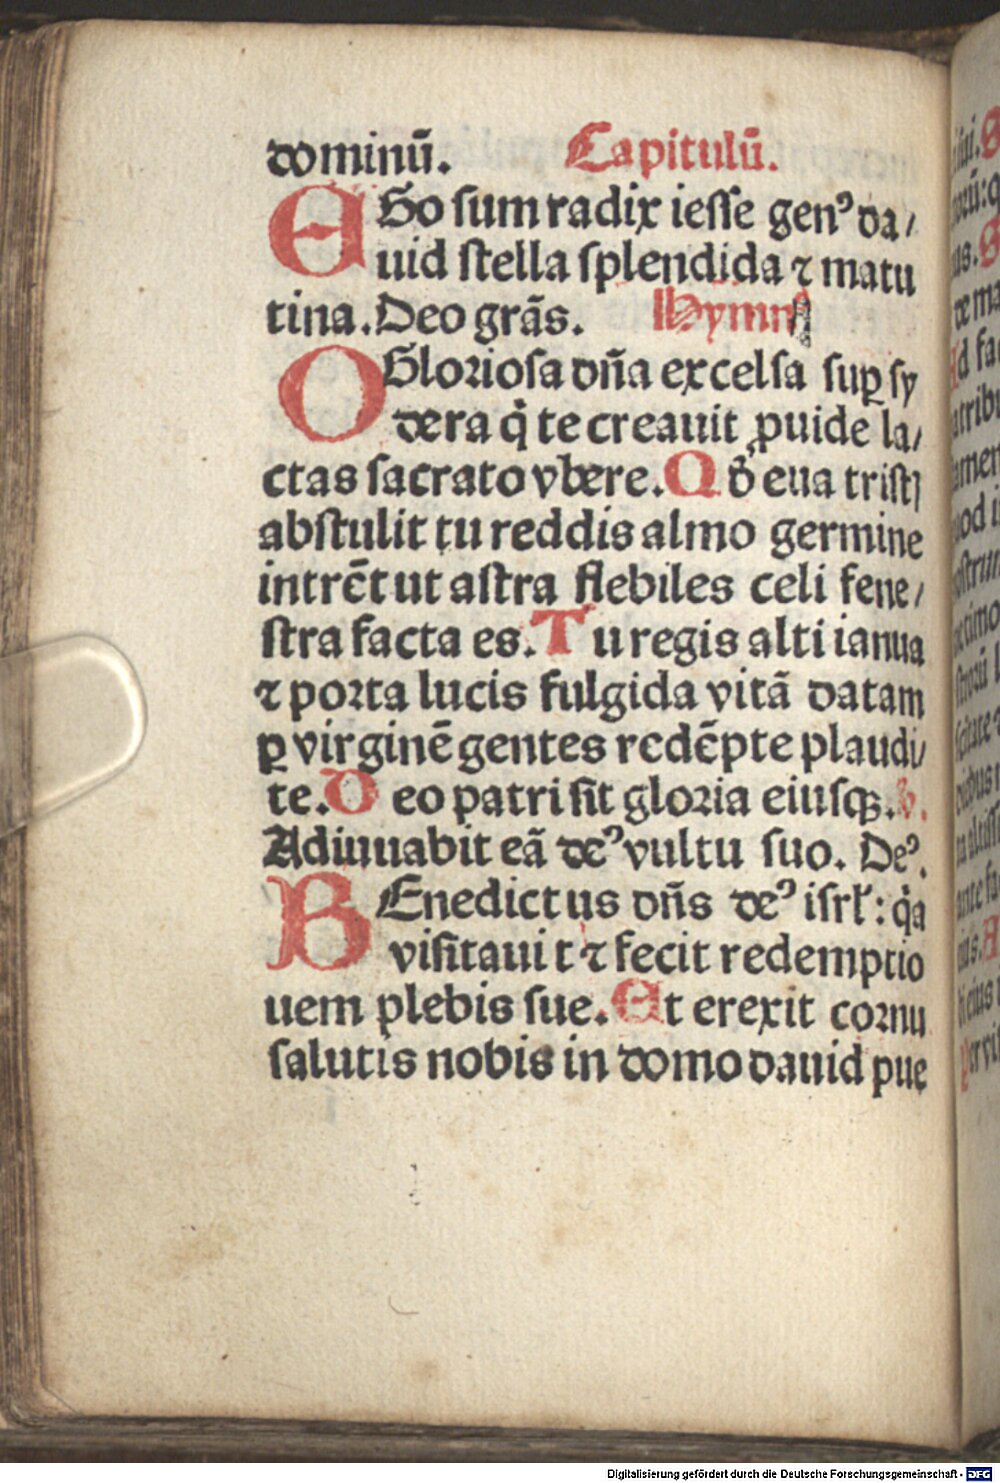 dominū. Capitulū.
EGo sum radix iesse genꝰ da/
uid stella splendida ⁊ matu
tina. Deo grãs. Hymnꝰ
OGloriosa dña excelsa suꝑ sy
dera q̇ te creauit ꝓuide la/
ctas sacrato vbere. Qđ eua tristꝭ
abstulit tu reddis almo germine
intrēt ut astra flebiles celi fene/
stra facta es. Tu regis alti ianua
⁊ porta lucis fulgida vitã datam
ꝑ virginē gentes redēpte plaudi/
te. Deo patri sit gloria eiusqꝫ. v.
Adiuuabit eã deꝰ vultu suo. Deꝰ.
BEnedictus dñs deꝰ isrł: q̇a
visitauit ⁊ fecit redemptio
uem plebis sue. Et erexit cornu
salutis nobis in domo dauid pue
Digitalisierung gefördert durch die Deutsche Forschungsgemeinschaft - DFG